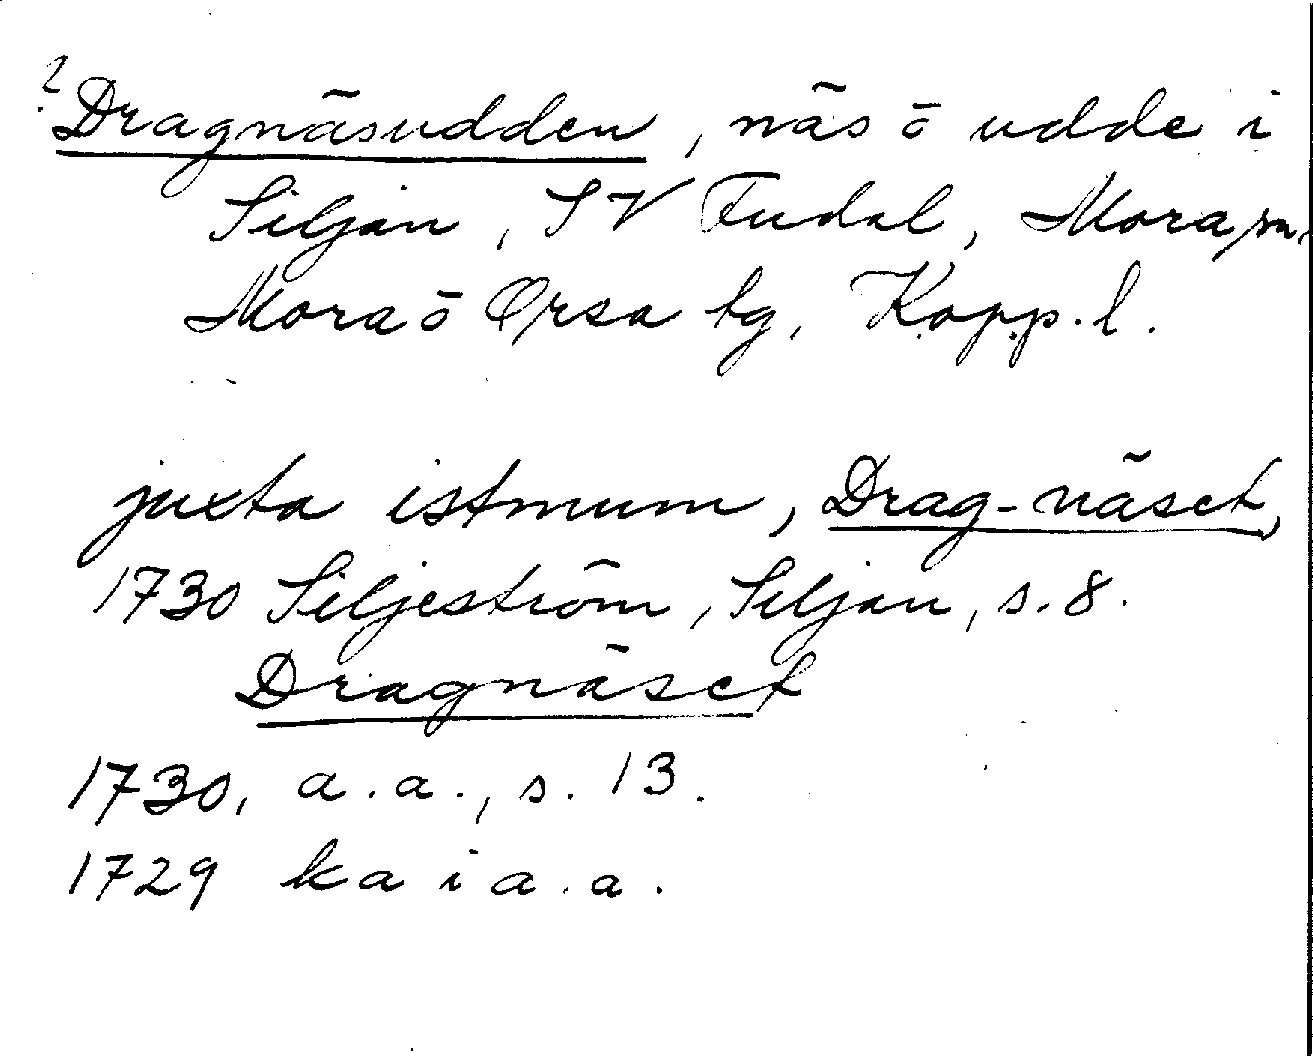 ? Dragnäsudden, näs ō udde i
Siljan, SV Fudal, Mora sn.
Mora ō Orsa tg, Kopp. l.
juxta istmum, Drag-näset,
1730 Siljeström, Siljan, s. 8.
Dragnäset
1730, a.a., s. 13.
1729 ka i a.a.